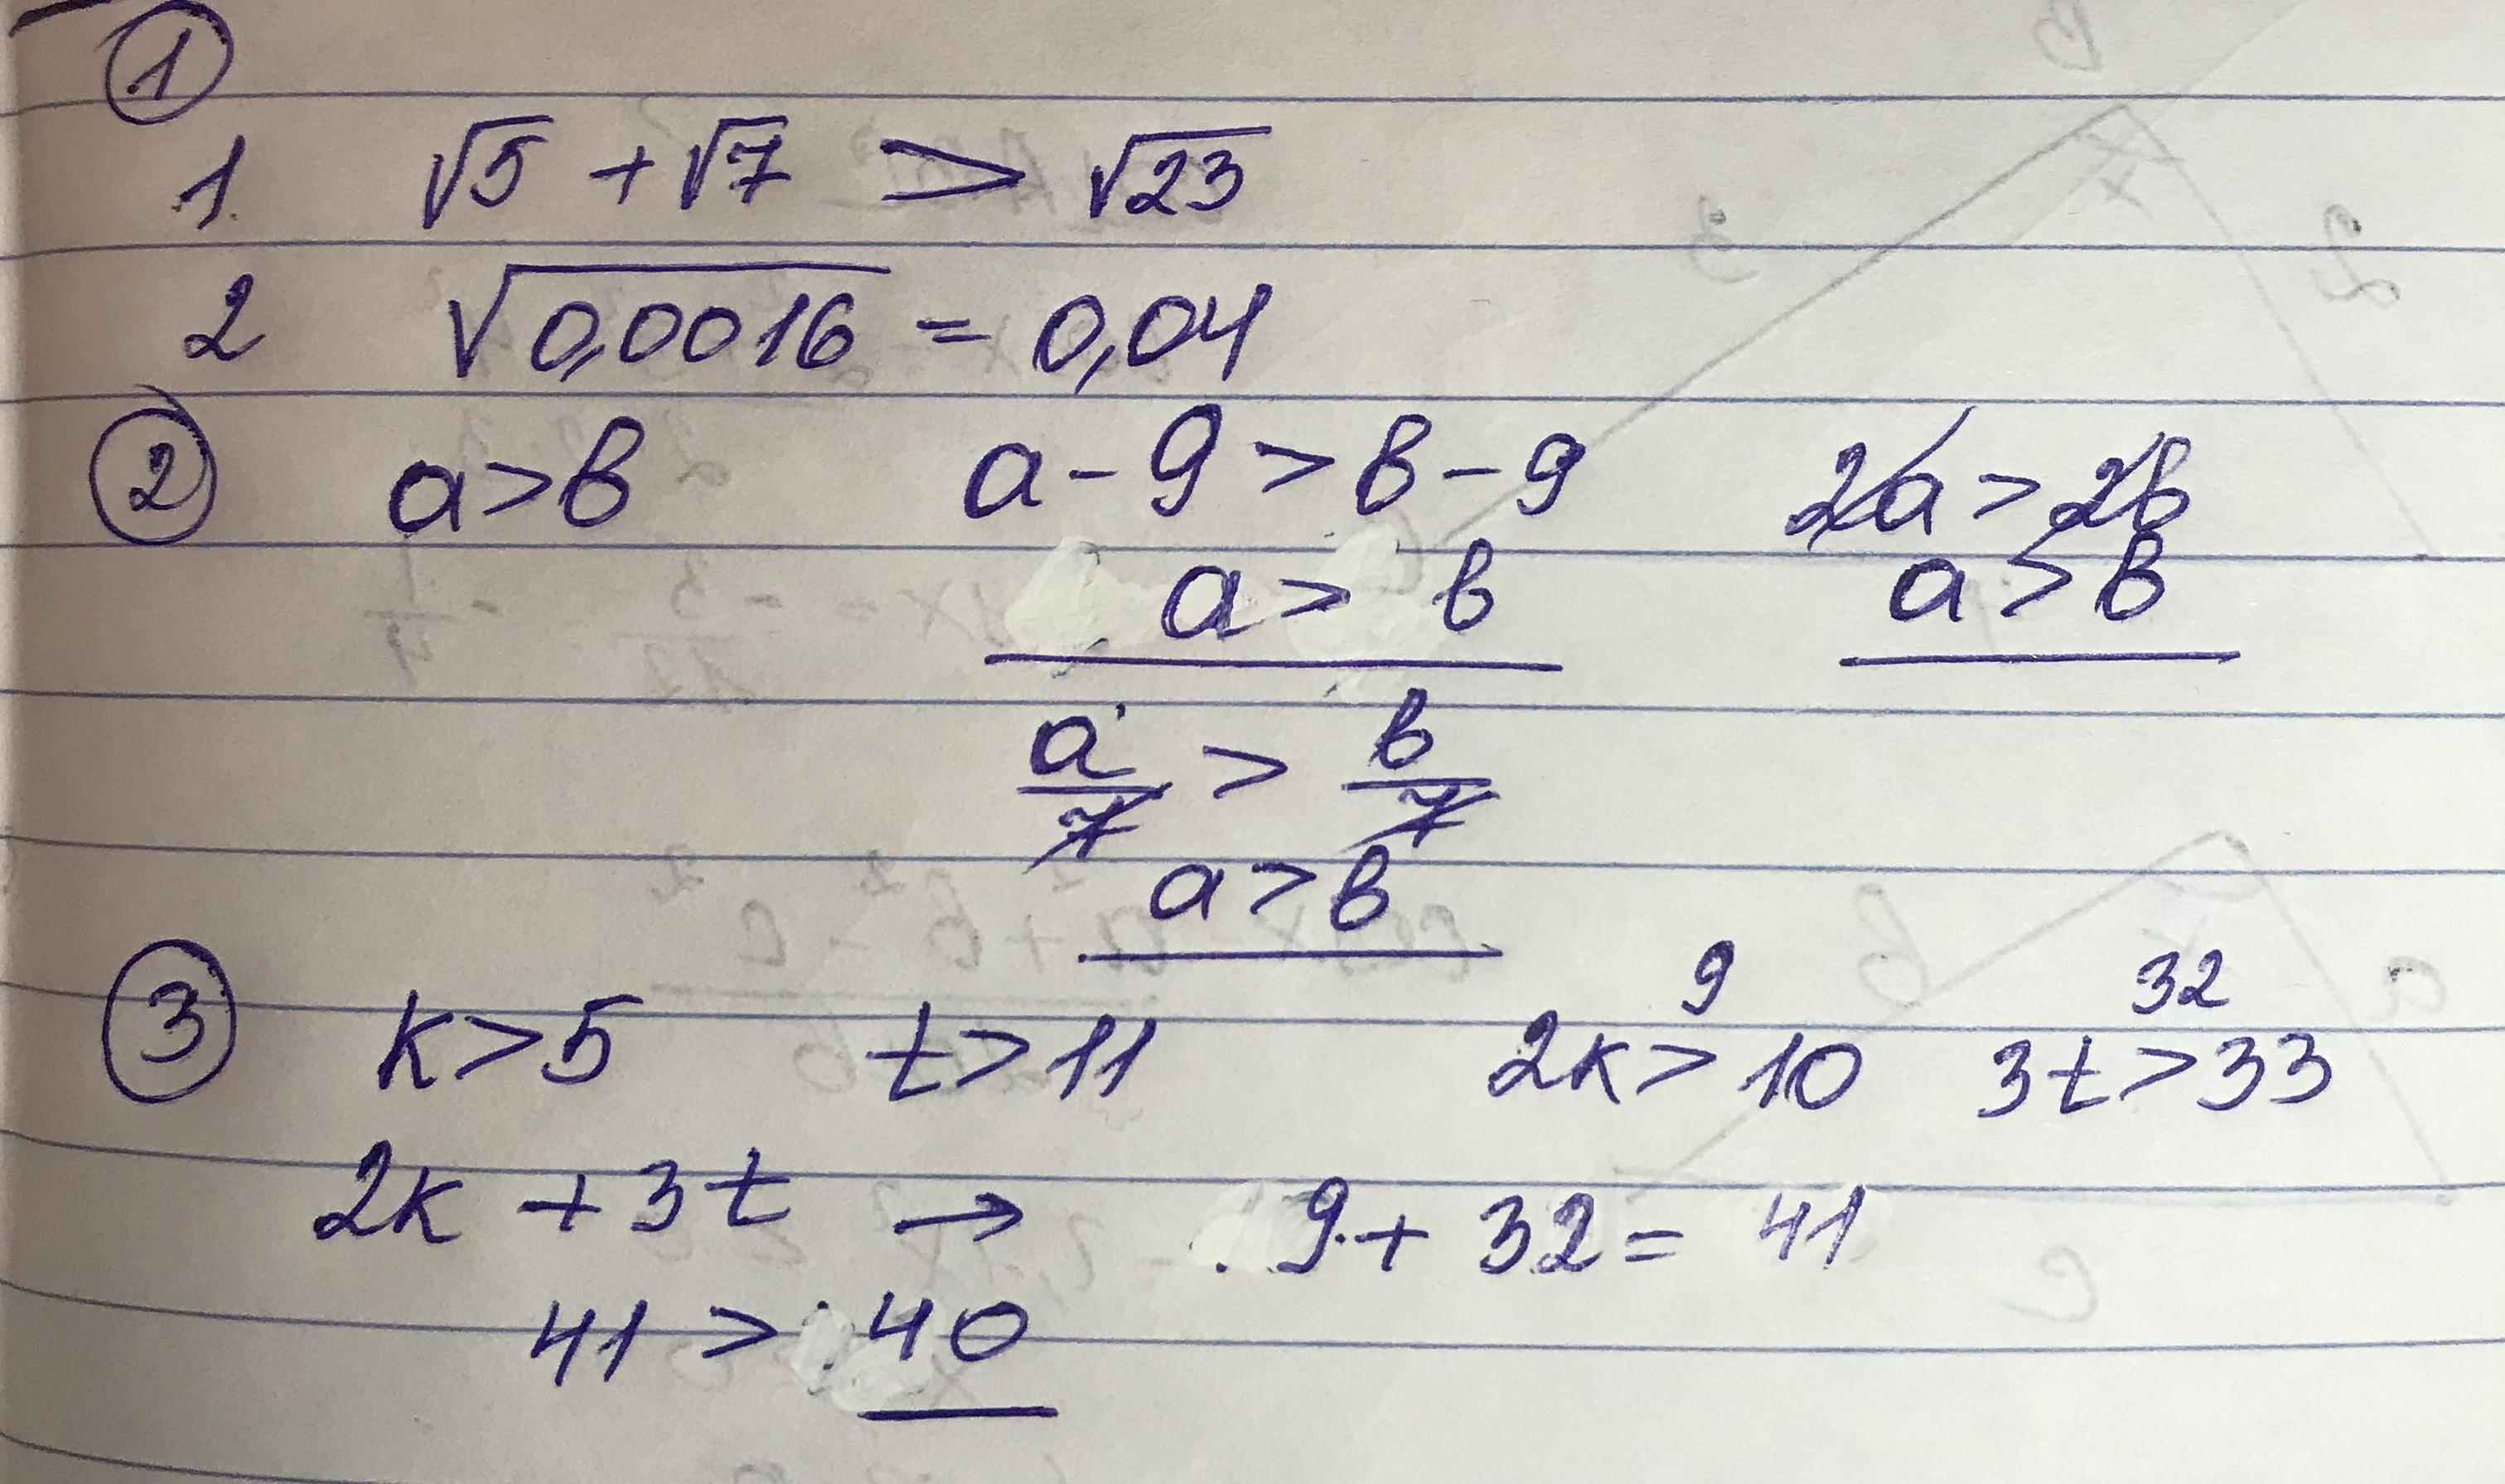 1
1. √5 + √7 > √23
2 √0,0016 = 0,04
2 a>b a-9>b-9 2a>2b
a> b a>b
a/7 > b/7
a>b
9 32
3 k>5 t>11 2k>10 3t>33
2k + 3t → 9 + 32 = 41
41 > 40